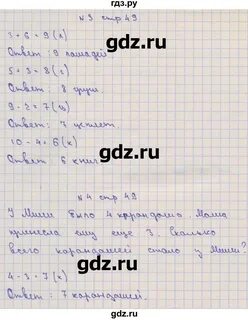 гдз.ру
№3 стр 49
3 + 6 = 9 (л)
Ответ: 9 лошадей.
5 + 3 = 8 (г)
Ответ: 8 груш.
9 - 2 = 7 (ц)
Ответ: 7 цыплят.
10 - 4 = 6 (к)
Ответ 6 книг
№4 стр 49
У Миши было 4 карандаша. Мама
принесла ему еще 3. Сколько
всего карандашей стало у Миши?
4 - 3 = 7 (к)
Ответ: 7 карандашей.
gdz.ru
gdz.ru
gdz.ru
gdz.ru